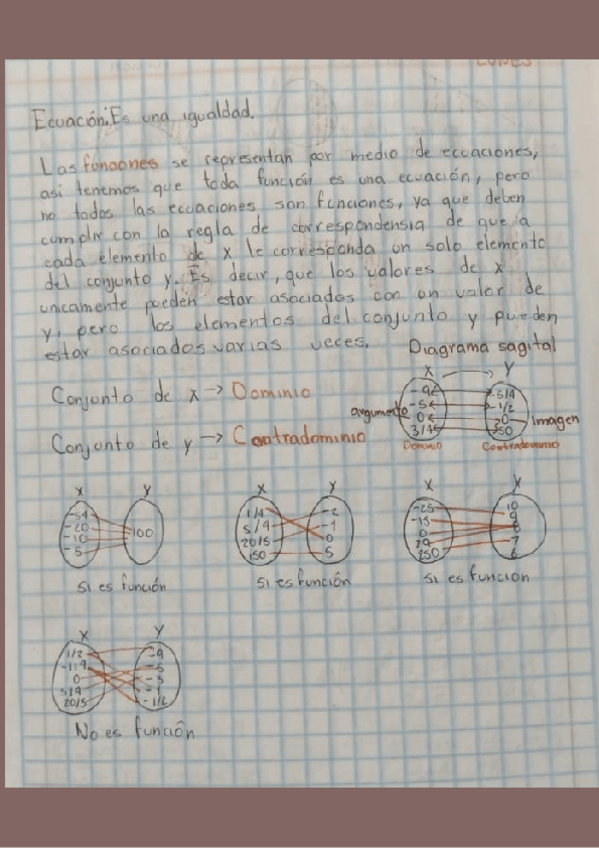 LUNES
Ecuación: Es una igualdad.
Las funciones se representan por medio de ecuaciones,
así tenemos que toda función es una ecuación, pero
no todas las ecuaciones son funciones, ya que deben
cumplir con la regla de correspondensia de que a
cada elemento de x le corresponda un solo elemento
del conjunto y. Es decir, que los valores de x
unicamente pueden estar asociados con un valor de
y, pero los elementos del conjunto y pueden
estar asociados varias veces.
Diagrama sagital
Conjunto de x → Dominio
Conjunto de y → Contradominio
X Y
argumento
-9 -5/9
-5 -1/2
0 0
3/15 50
imagen
Dominio Contradominio
X Y
-20
-10 100
-5
Si es función
X Y
1/4 -2
5/9 -1
20/5 0
150 5
Si es función
X Y
-25 10
-15 9
0 8
79 7
250 6
Si es función
X Y
1/2 -9
-5
0 -3
5/9 -1
20/5 -1/2
No es función